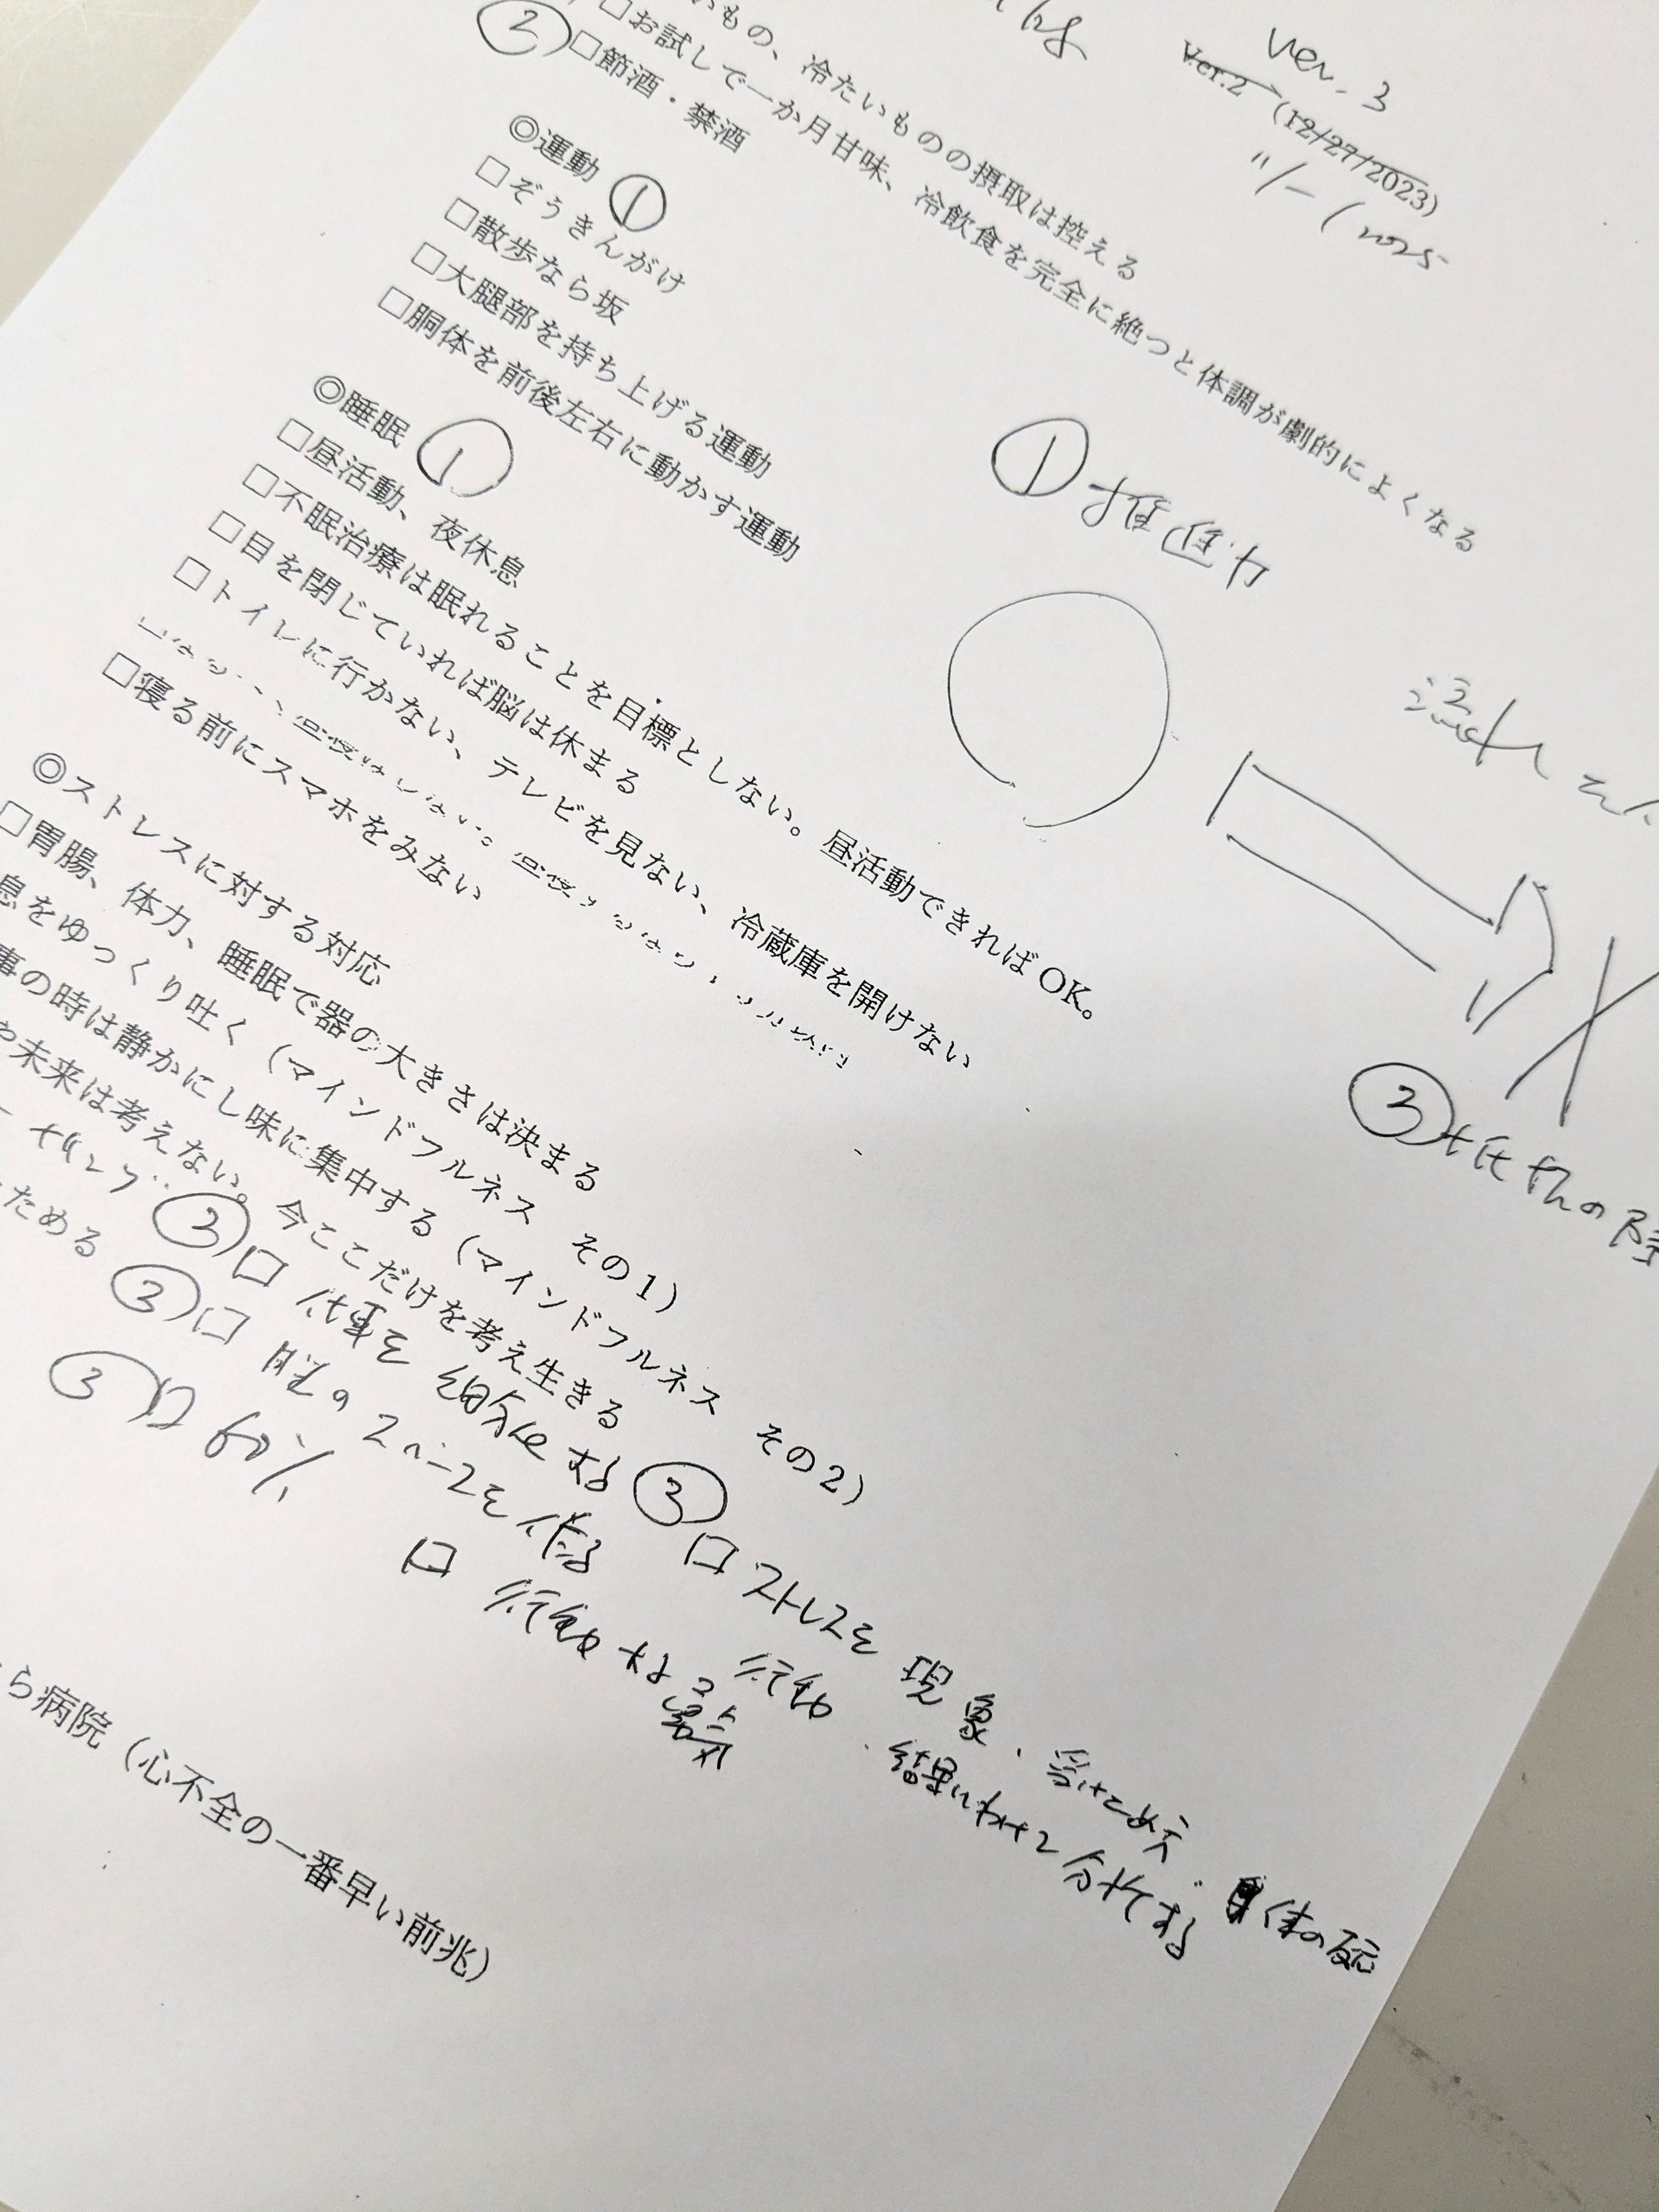 ver. 3
Ver.2 (12/27/2023)
いもの、冷たいものの摂取は控える
□お試しで一か月甘味、冷飲食を完全に絶つと体調が劇的によくなる
② □節酒・禁酒
◎運動 ①
□ぞうきんがけ
□散歩なら坂
□大腿部を持ち上げる運動
□胴体を前後左右に動かす運動
① 推進力
◎睡眠 ①
□昼活動、夜休息
□不眠治療は眠れることを目標としない。昼活動できればOK。
□目を閉じていれば脳は休まる
□トイレに行かない、テレビを見ない、冷蔵庫を開けない
□寝る前にスマホをみない
③ 抵抗の
◎ストレスに対する対応
□胃腸、体力、睡眠で器の大きさは決まる
息をゆっくり吐く（マインドフルネス その1）
事の時は静かにし味に集中する（マインドフルネス その2）
や未来は考えない。今ここだけを考え生きる
ためる
③ □ 仕事を細分化する
③ □ ストレスを現象、受けとめ方、身体の反応
行動、結果にわけて分析する
③ □ 脳の スペースを作る
③ □ 60%
□ 行動する勇気
ら病院（心不全の一番早い前兆）